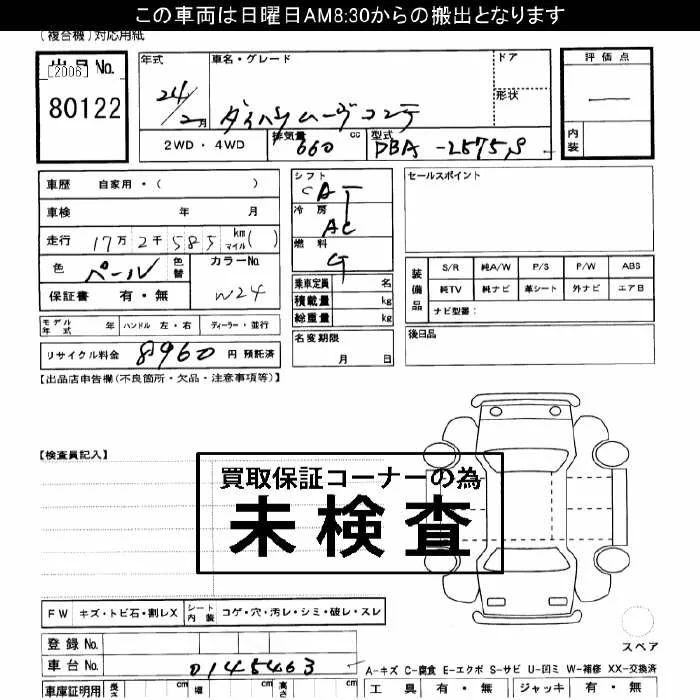 この車両は日曜日AM8:30からの搬出となります
(複合機)対応用紙
出品 No.
[2006]
80122
年式
24/2月
車名・グレード
ダイハツムーヴコンテ
ドア
形状
評価点
―
内装
2WD・4WD
排気量
660 cc
型式
DBA-L575S
車歴 自家用・( )
車検 年 月
走行 17万2千585 km マイル( )
色 パール 色替
カラーNo.
W24
保証書 有・無
シフト
CAT
冷房
AC
燃料
G
乗車定員 名
積載量 kg
総重量 kg
セールスポイント
装備品
S/R 純A/W P/S P/W ABS
純TV 純ナビ 革シート 外ナビ エアB
ナビ型番:
モデル年式 年 ハンドル 左・右 ディーラー・並行
名変期限
月 日
後日品
リサイクル料金 8960 円 預託済
【出品店申告欄(不良箇所・欠品・注意事項等)】
【検査員記入】
買取保証コーナーの為
未検査
FW キズ・トビ石・割レX シート内装 コゲ・穴・汚レ・シミ・破レ・スレ
スペア
登録 No.
車台 No. 0145463
A-キズ C-腐食 E-エクボ S-サビ U-凹ミ W-補修 XX-交換済
車庫証明用 長さ cm 幅 cm 高さ cm
工具 有・無 ジャッキ 有・無